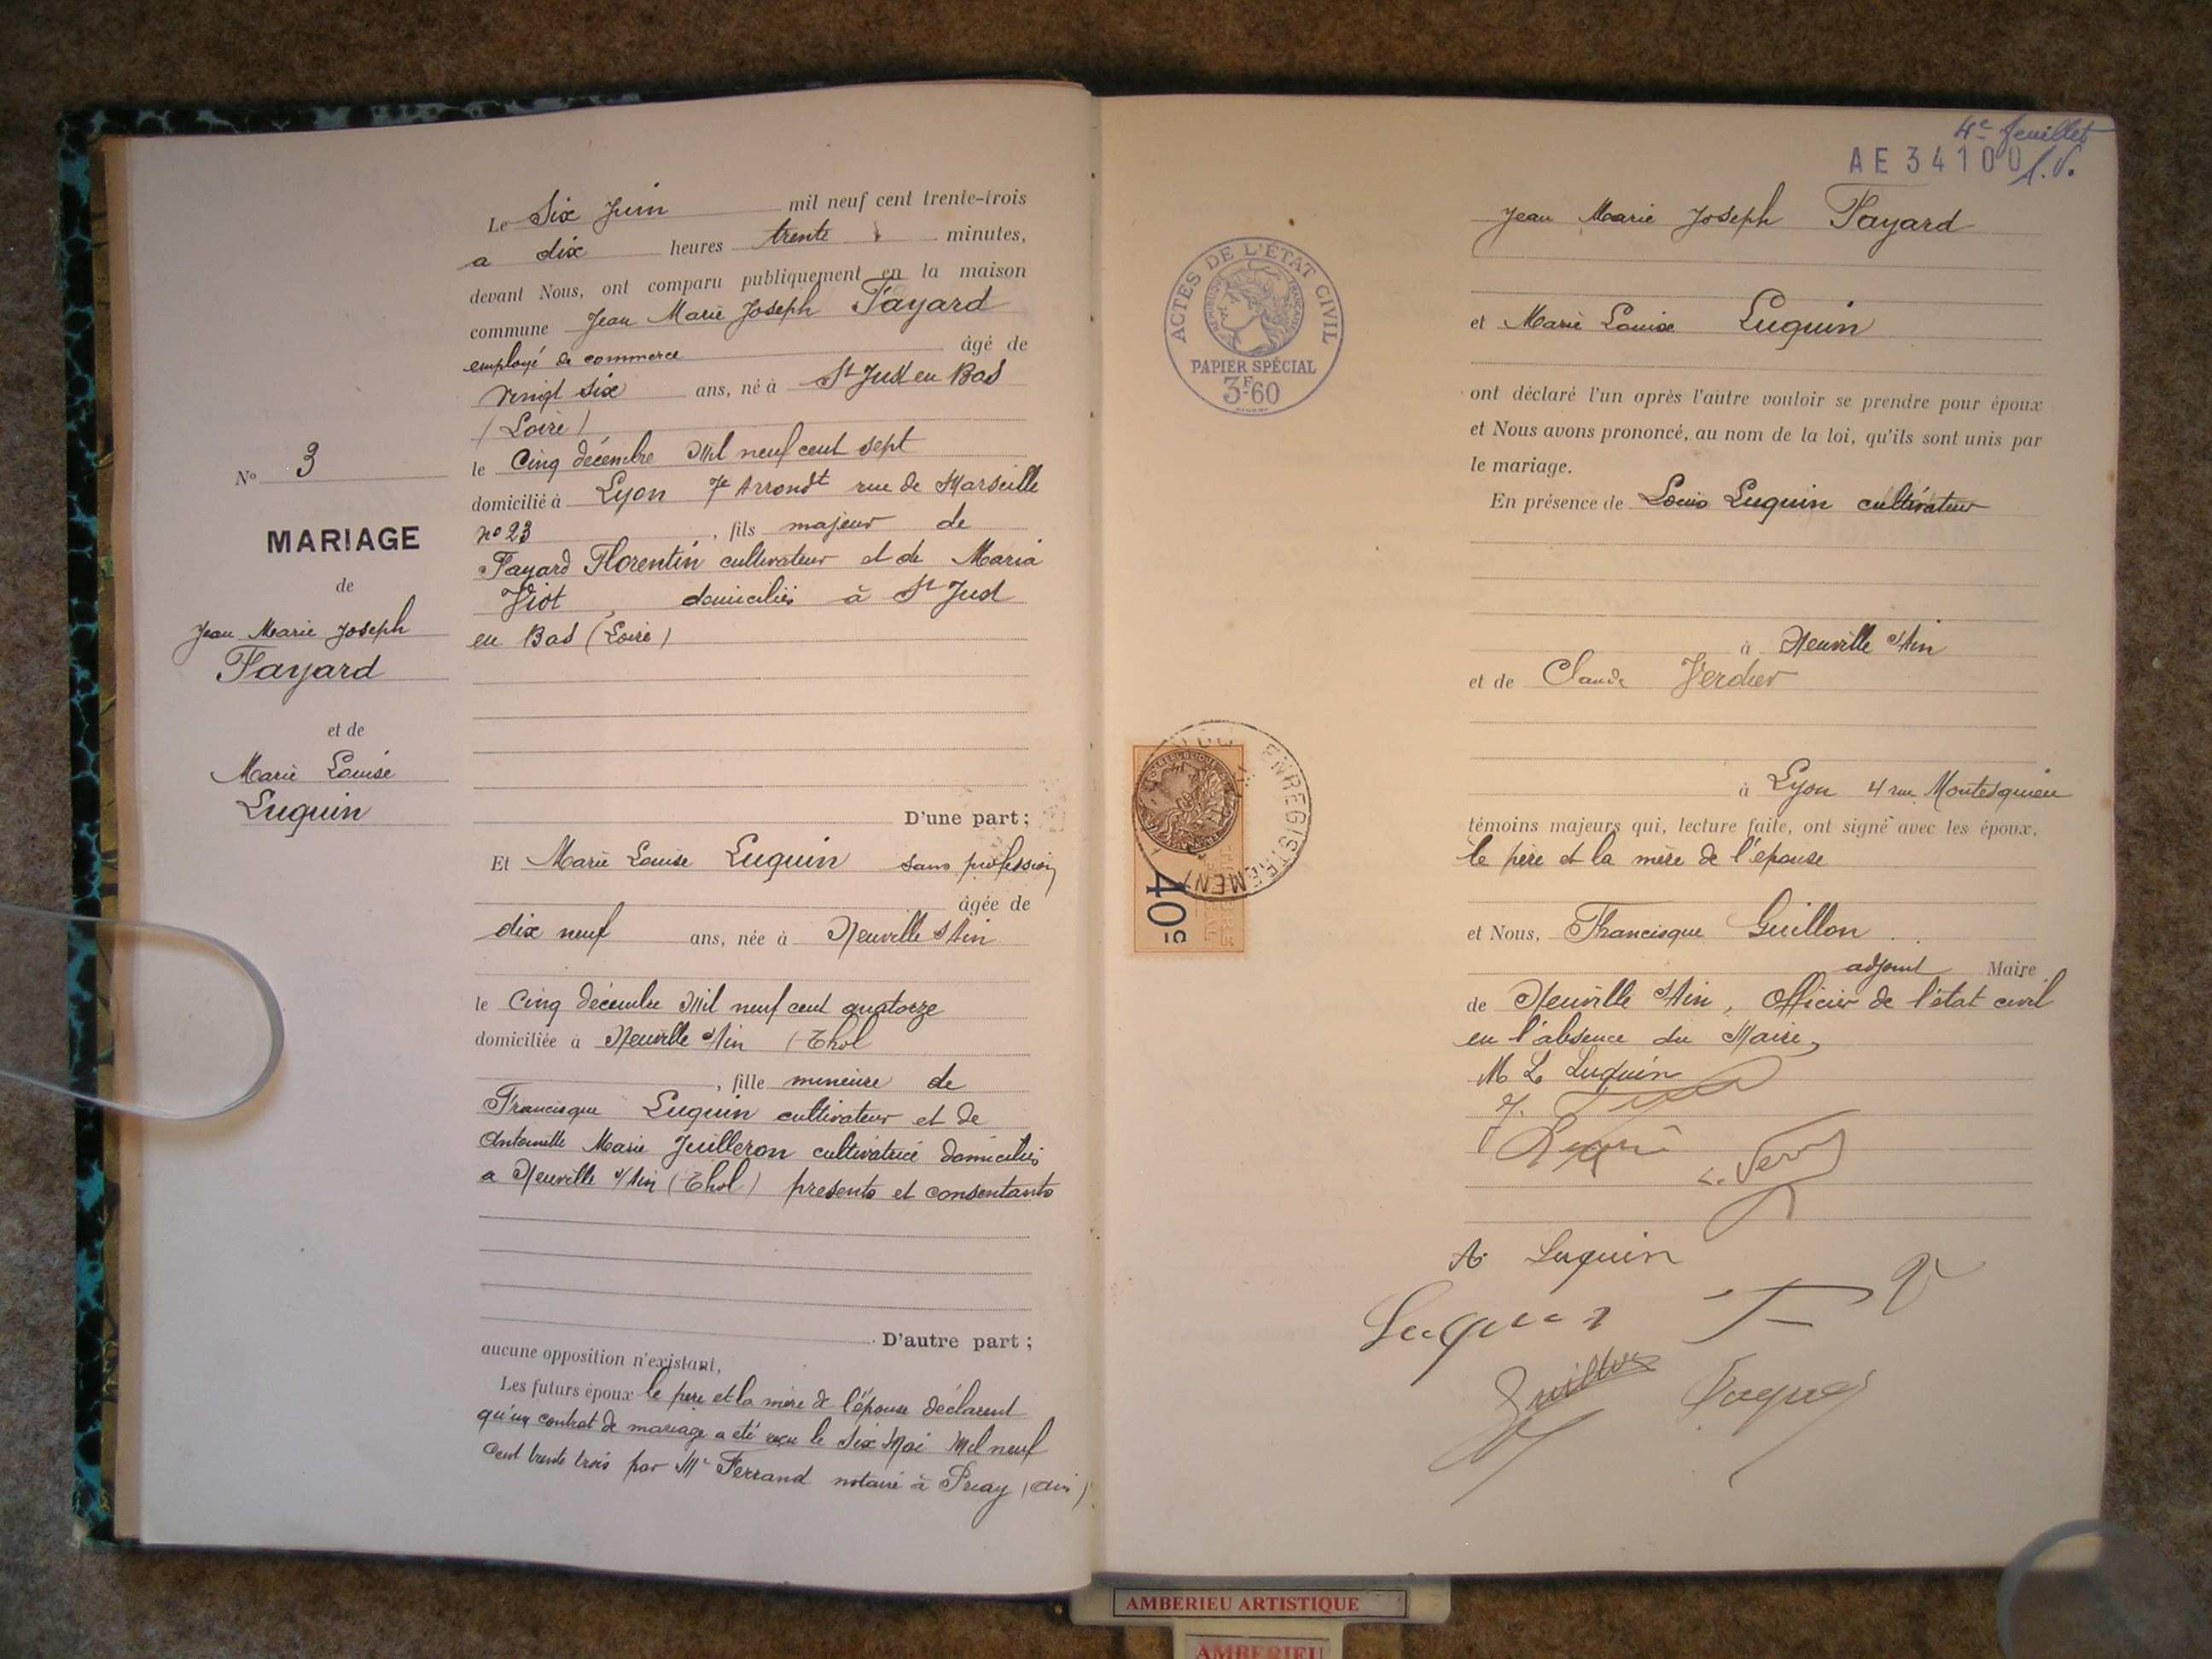 Le Six Juin mil neuf cent trente-trois
a dix heures trente minutes,
devant Nous, ont comparu publiquement en la maison
commune Jean Marie Joseph Fayard
employé de commerce âgé de
vingt six ans, né à St Just en Bas
(Loire)
le Cinq décembre Mil neuf cent sept
domicilié à Lyon 7e Arrondt rue de Marseille
no 23, fils majeur de
Fayard Florentin cultivateur et de Maria
Viot, domiciliés à St Just
en Bas (Loire)
D'une part;
Nº 3
MARIAGE
de
Jean Marie Joseph
Fayard
et de
Marie Louise
Luquin
Et Marie Louise Luquin sans profession
âgée de
dix neuf ans, née à Neuville s/Ain
le Cinq décembre Mil neuf cent quatorze
domiciliée à Neuville s/Ain (Thol
, fille mineure de
Francisque Luquin cultivateur et de
Antoinette Marie Juilleron cultivatrice domiciliés
a Neuville s/Ain (Thol) presents et consentants
D'autre part;
aucune opposition n'existant,
Les futurs époux le père et la mère de l'épouse déclarent
qu'un contrat de mariage a été reçu le Six Mai Mil neuf
cent trente trois par Me Ferrand notaire à Priay (Ain)
4e feuillet
AE 34100
ACTES DE L'ÉTAT CIVIL
RÉPUBLIQUE FRANÇAISE
PAPIER SPÉCIAL
3F60
Jean Marie Joseph Fayard
et Marie Louise Luquin
ont déclaré l'un après l'autre vouloir se prendre pour époux
et Nous avons prononcé, au nom de la loi, qu'ils sont unis par
le mariage.
En présence de Louis Luquin cultivateur
à Neuville s/Ain
et de Claude Verdier
à Lyon 4 rue Montesquieu
témoins majeurs qui, lecture faite, ont signé avec les époux,
le père et la mère de l'epouse
et Nous, Francisque Guillon
adjoint Maire
de Neuville s/Ain, Officier de l'état civil
en l'absence du Maire,
M L Luquin
A Luquin
Luquin
ENREGISTREMENT
40c
AMBERIEU ARTISTIQUE
AMBERIEU